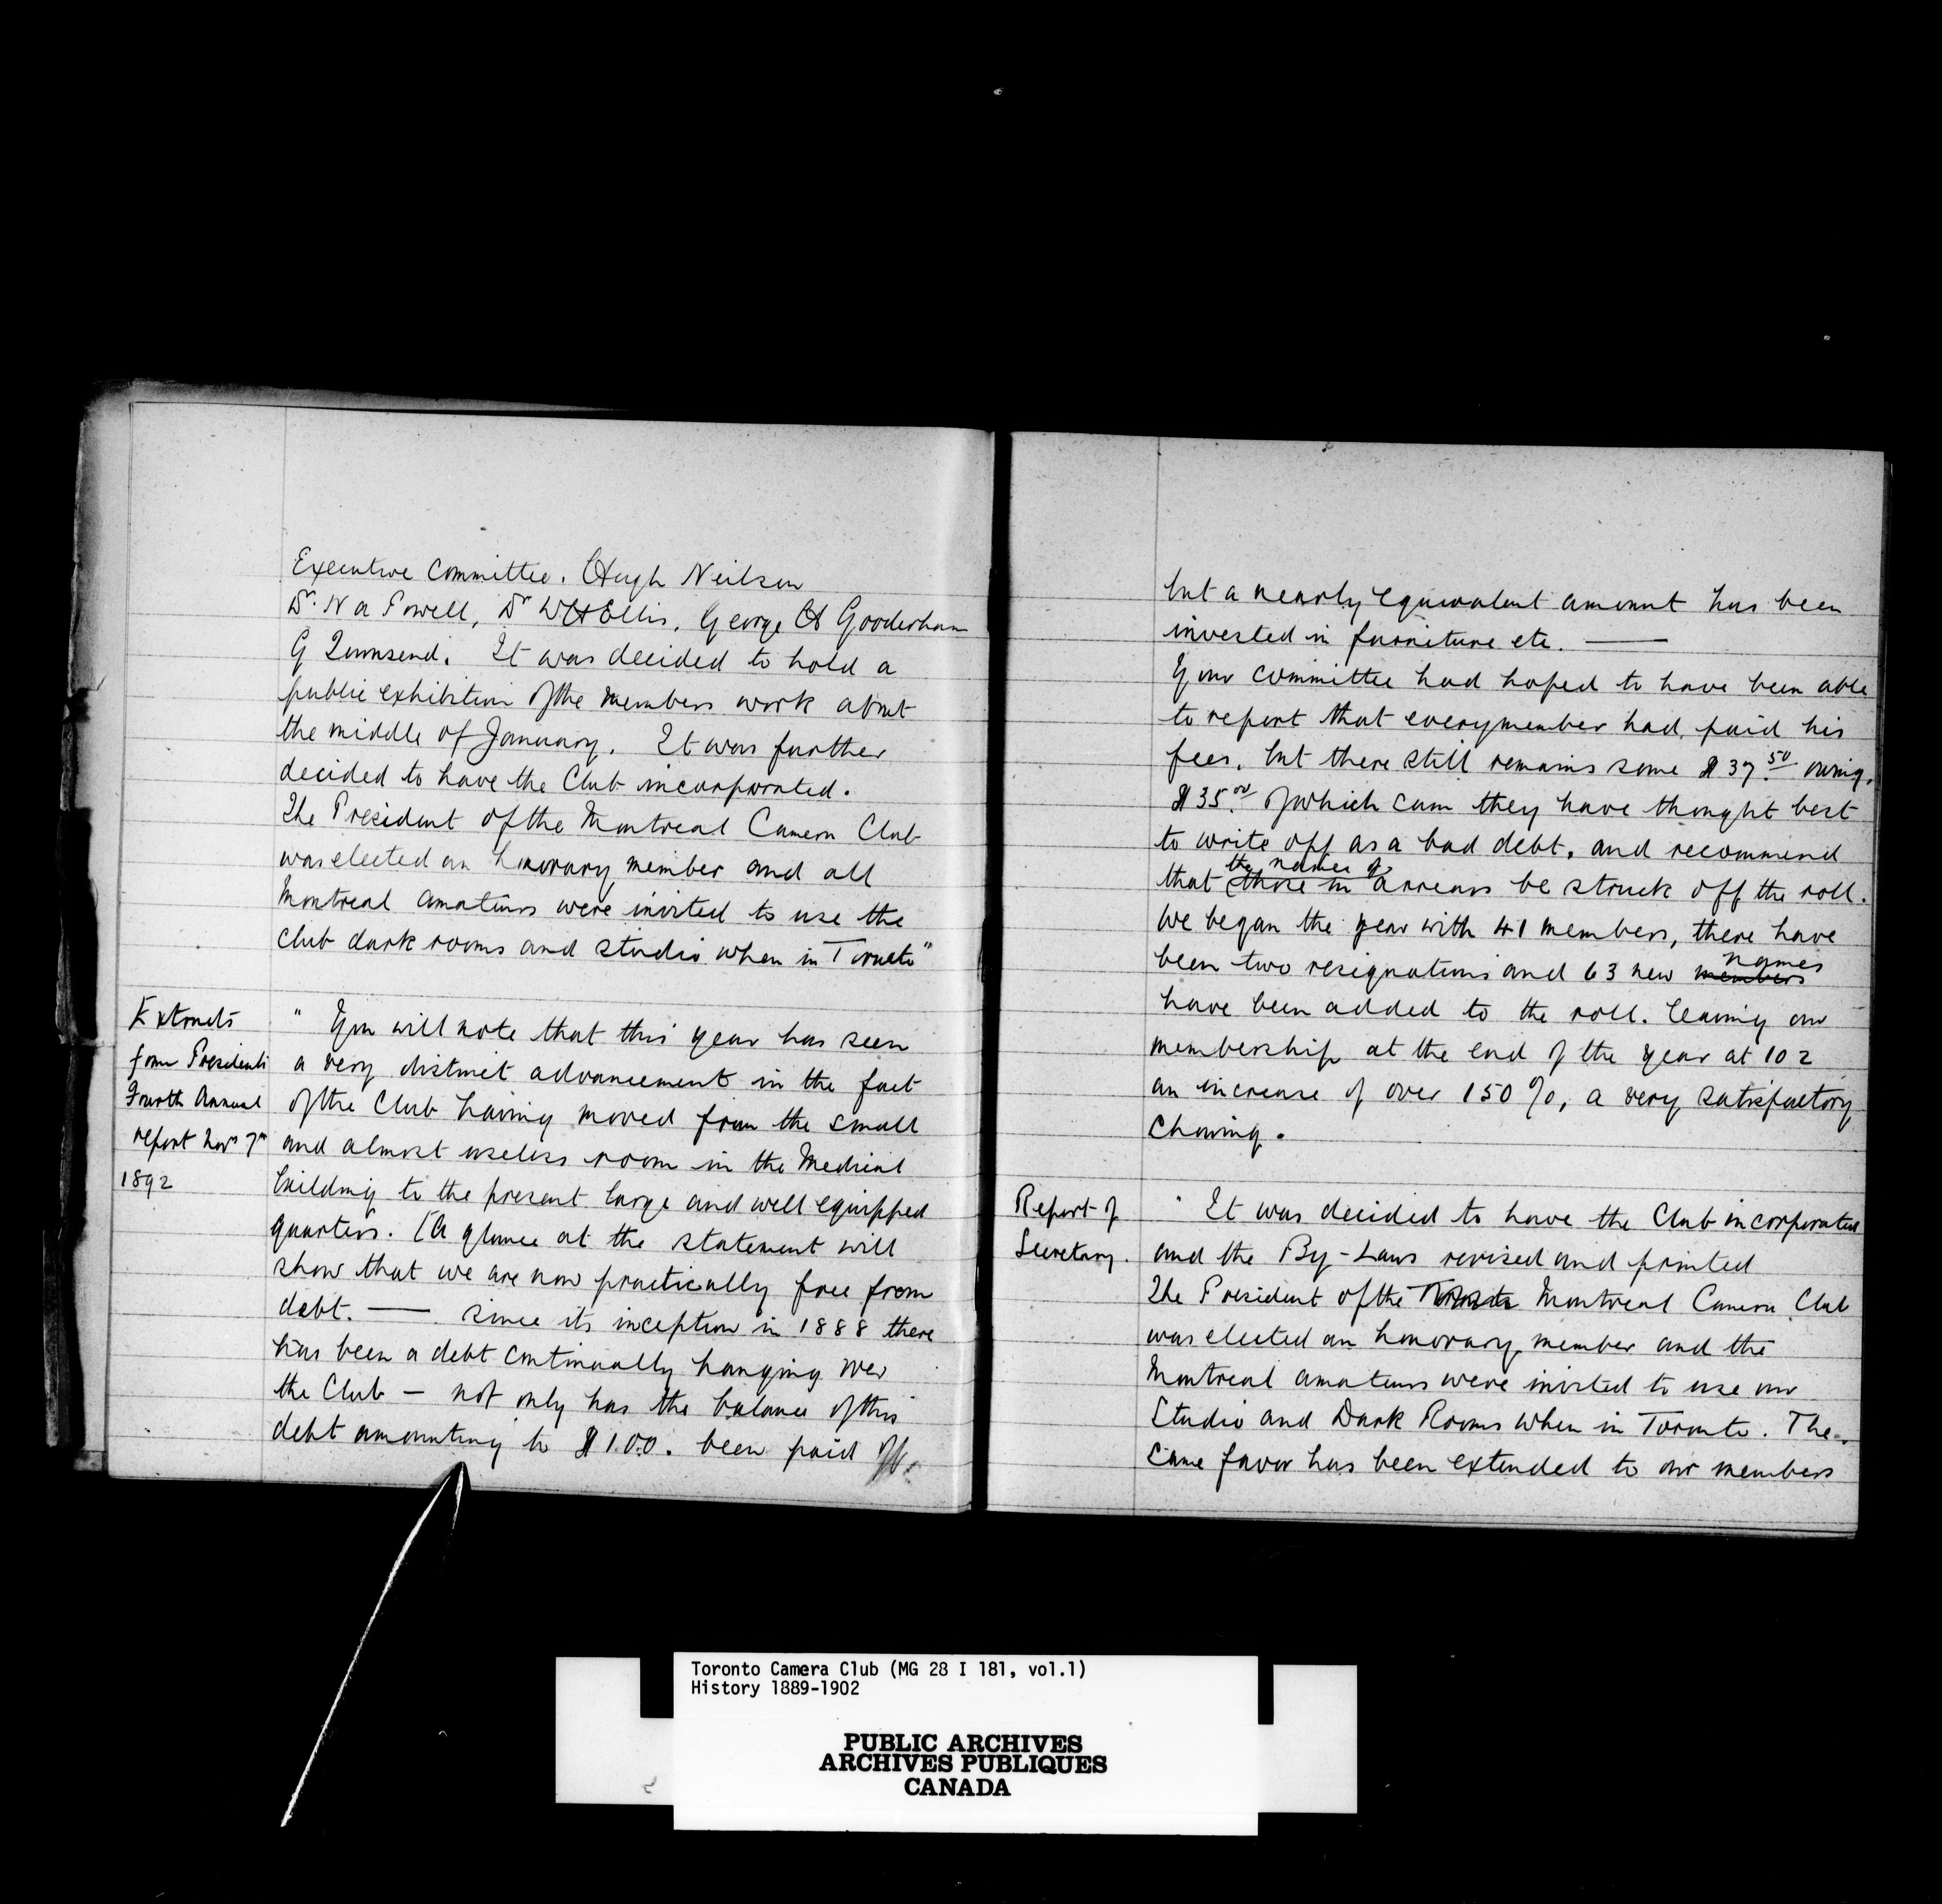 Executive Committee. Hugh Neilson
Dr. N A Powell, Dr W H Ellis, George H Gooderham
G Townsend. It was decided to hold a
public exhibition of the members work about
the middle of January. It was further
decided to have the Club incorporated.
The President of the Montreal Camera Club
was elected an honorary member and all
Montreal amateurs were invited to use the
Club dark rooms and studio when in Toronto"
Extracts
from Presidents
Fourth Annual
report Novr 7th
1892
" You will note that this year has seen
a very distinct advancement in the fact
of the Club having moved from the small
and almost useless room in the Medical
building to the present large and well equipped
quarters. [A glance at the statement will
show that we are now practically free from
debt. — since its inception in 1888 there
has been a debt continually hanging over
the Club — not only has the balance of this
debt amounting to $100. been paid off.
but a nearly equivalent amount has been
invested in furniture etc. —
Your committee had hoped to have been able
to report that every member had paid his
fees, but there still remains some $37.50 owing,
$35.00 of which sum they have thought best
to write off as a bad debt, and recommend
the names of
that those in arrears be struck off the roll.
We began the year with 41 members, there have
names
been two resignations and 63 new members
have been added to the roll. leaving our
membership at the end of the year at 102
an increase of over 150%, a very satisfactory
showing.
Report of
Secretary.
" It was decided to have the Club incorporated
and the By-Laws revised and printed
The President of the Toronto Montreal Camera Club
was elected an honorary member and the
Montreal amateurs were invited to use our
Studio and Dark Rooms when in Toronto. The
same favor has been extended to our members
Toronto Camera Club (MG 28 I 181, vol.1)
History 1889-1902
PUBLIC ARCHIVES
ARCHIVES PUBLIQUES
CANADA